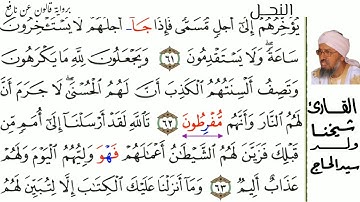 برواية قالون عن نافع
النحل
يُوَخِّرُهُمْ إِلَىٰ أَجَلٍ مُّسَمًّى فَإِذَا جَآ أَجَلُهُمْ لَا يَسْتَٰخِرُونَ
سَاعَةً وَلَا يَسْتَقْدِمُونَ ٦١ وَيَجْعَلُونَ لِلَّهِ مَا يَكْرَهُونَ
وَتَصِفُ أَلْسِنَتُهُمُ الْكَذِبَ أَنَّ لَهُمُ الْحُسْنَىٰ لَا جَرَمَ أَنَّ
لَهُمُ النَّارَ وَأَنَّهُم مُّفْرِطُونَ ٦٢ تَاللَّهِ لَقَدْ أَرْسَلْنَا إِلَىٰ أُمَمٍ مِّن
قَبْلِكَ فَزَيَّنَ لَهُمُ الشَّيْطَٰنُ أَعْمَٰلَهُمْ فَهْوَ وَلِيُّهُمُ الْيَوْمَ وَلَهُمْ
عَذَابٌ أَلِيمٌ ٦٣ وَمَا أَنزَلْنَا عَلَيْكَ الْكِتَٰبَ إِلَّا لِتُبَيِّنَ لَهُمُ
القارئ
شيخنا
ولد
سيد الحاج